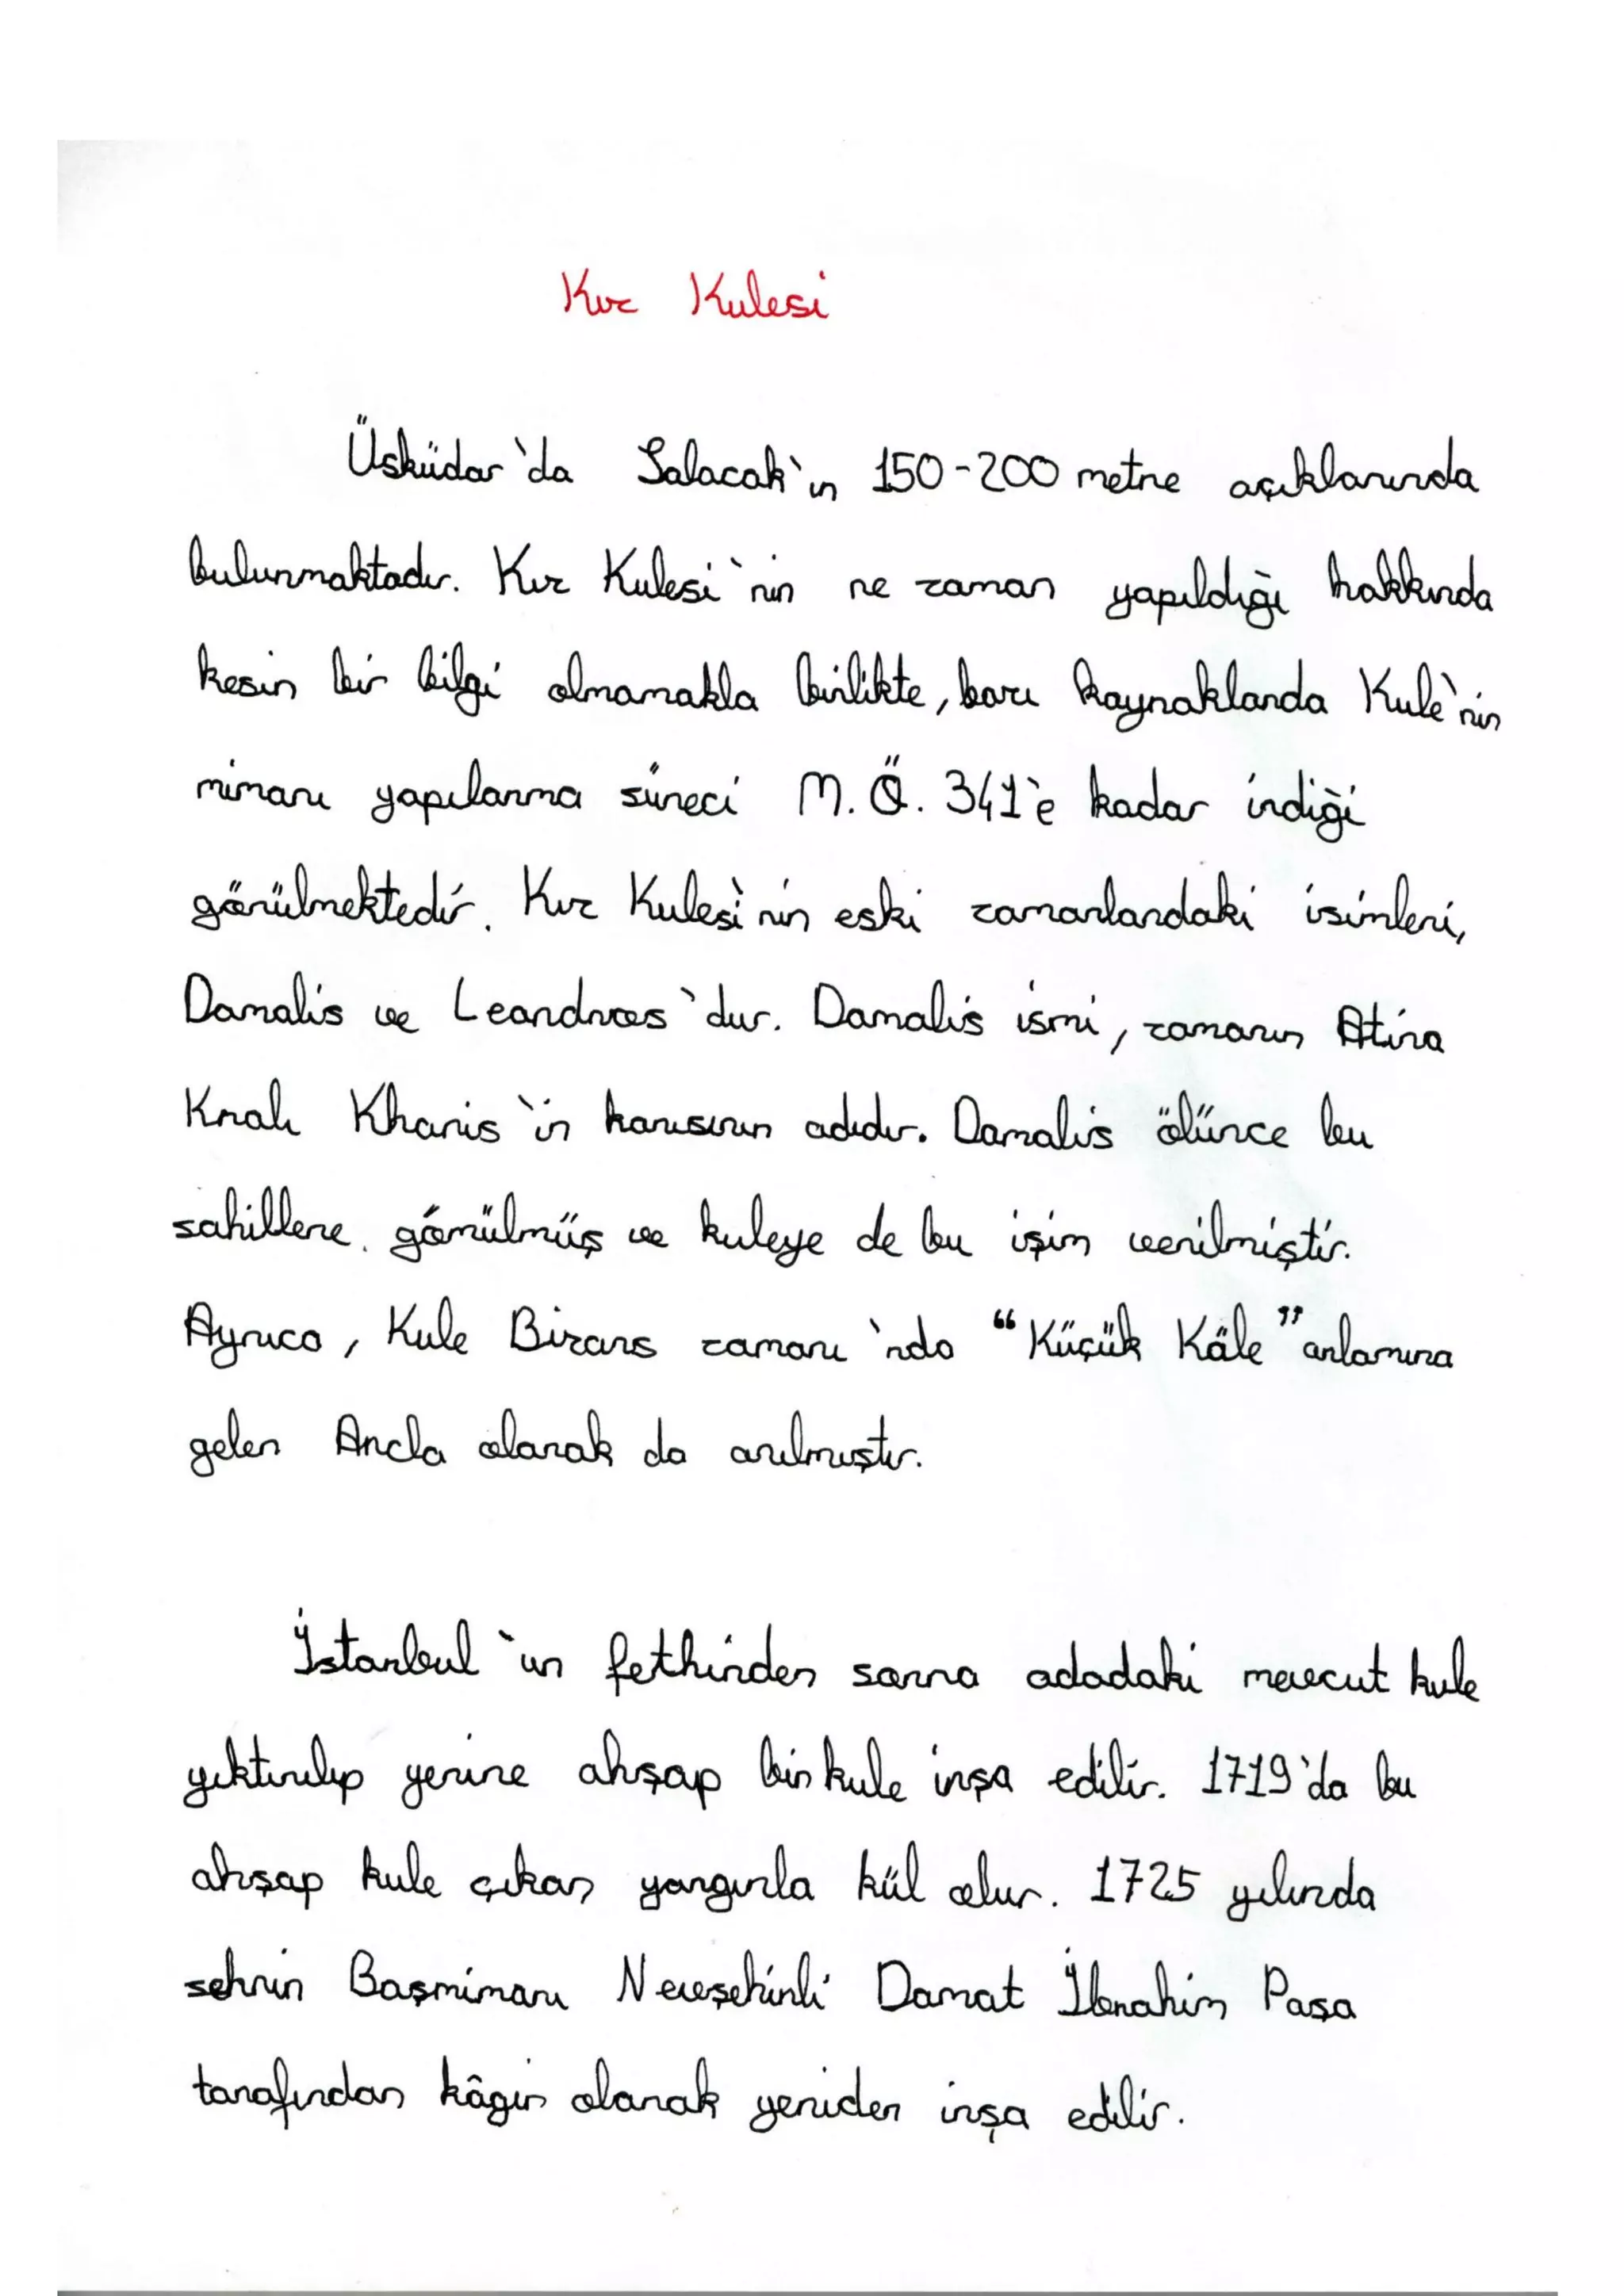 Kız Kulesi
Üsküdar'da Salacak'ın 150-200 metre açıklarında
bulunmaktadır. Kız Kulesi'nin ne zaman yapıldığı hakkında
kesin bir bilgi olmamakla birlikte, bazı kaynaklarda Kule'nin
mimarı yapılanma süreci M.Ö. 341'e kadar indiği
görülmektedir. Kız Kulesi'nin eski zamanlardaki isimleri,
Damalis ve Leandros'dur. Damalis ismi, zamanın Atina
Kralı Kharis'in karısının adıdır. Damalis ölünce bu
sahillere gömülmüş ve kuleye de bu işim verilmiştir.
Ayrıca, Kule Bizans zamanı'nda "Küçük Kale" anlamına
gelen Arcla olarak da anılmıştır.
İstanbul'un fethinden sonra adadaki mevcut kule
yıktırılıp yerine ahşap bir kule inşa edilir. 1719'da bu
ahşap kule çıkan yangınla kül olur. 1725 yılında
sehrin Başmimarı Nevşehirli Damat İbrahim Paşa
tarafından kâgir olarak yeniden inşa edilir.